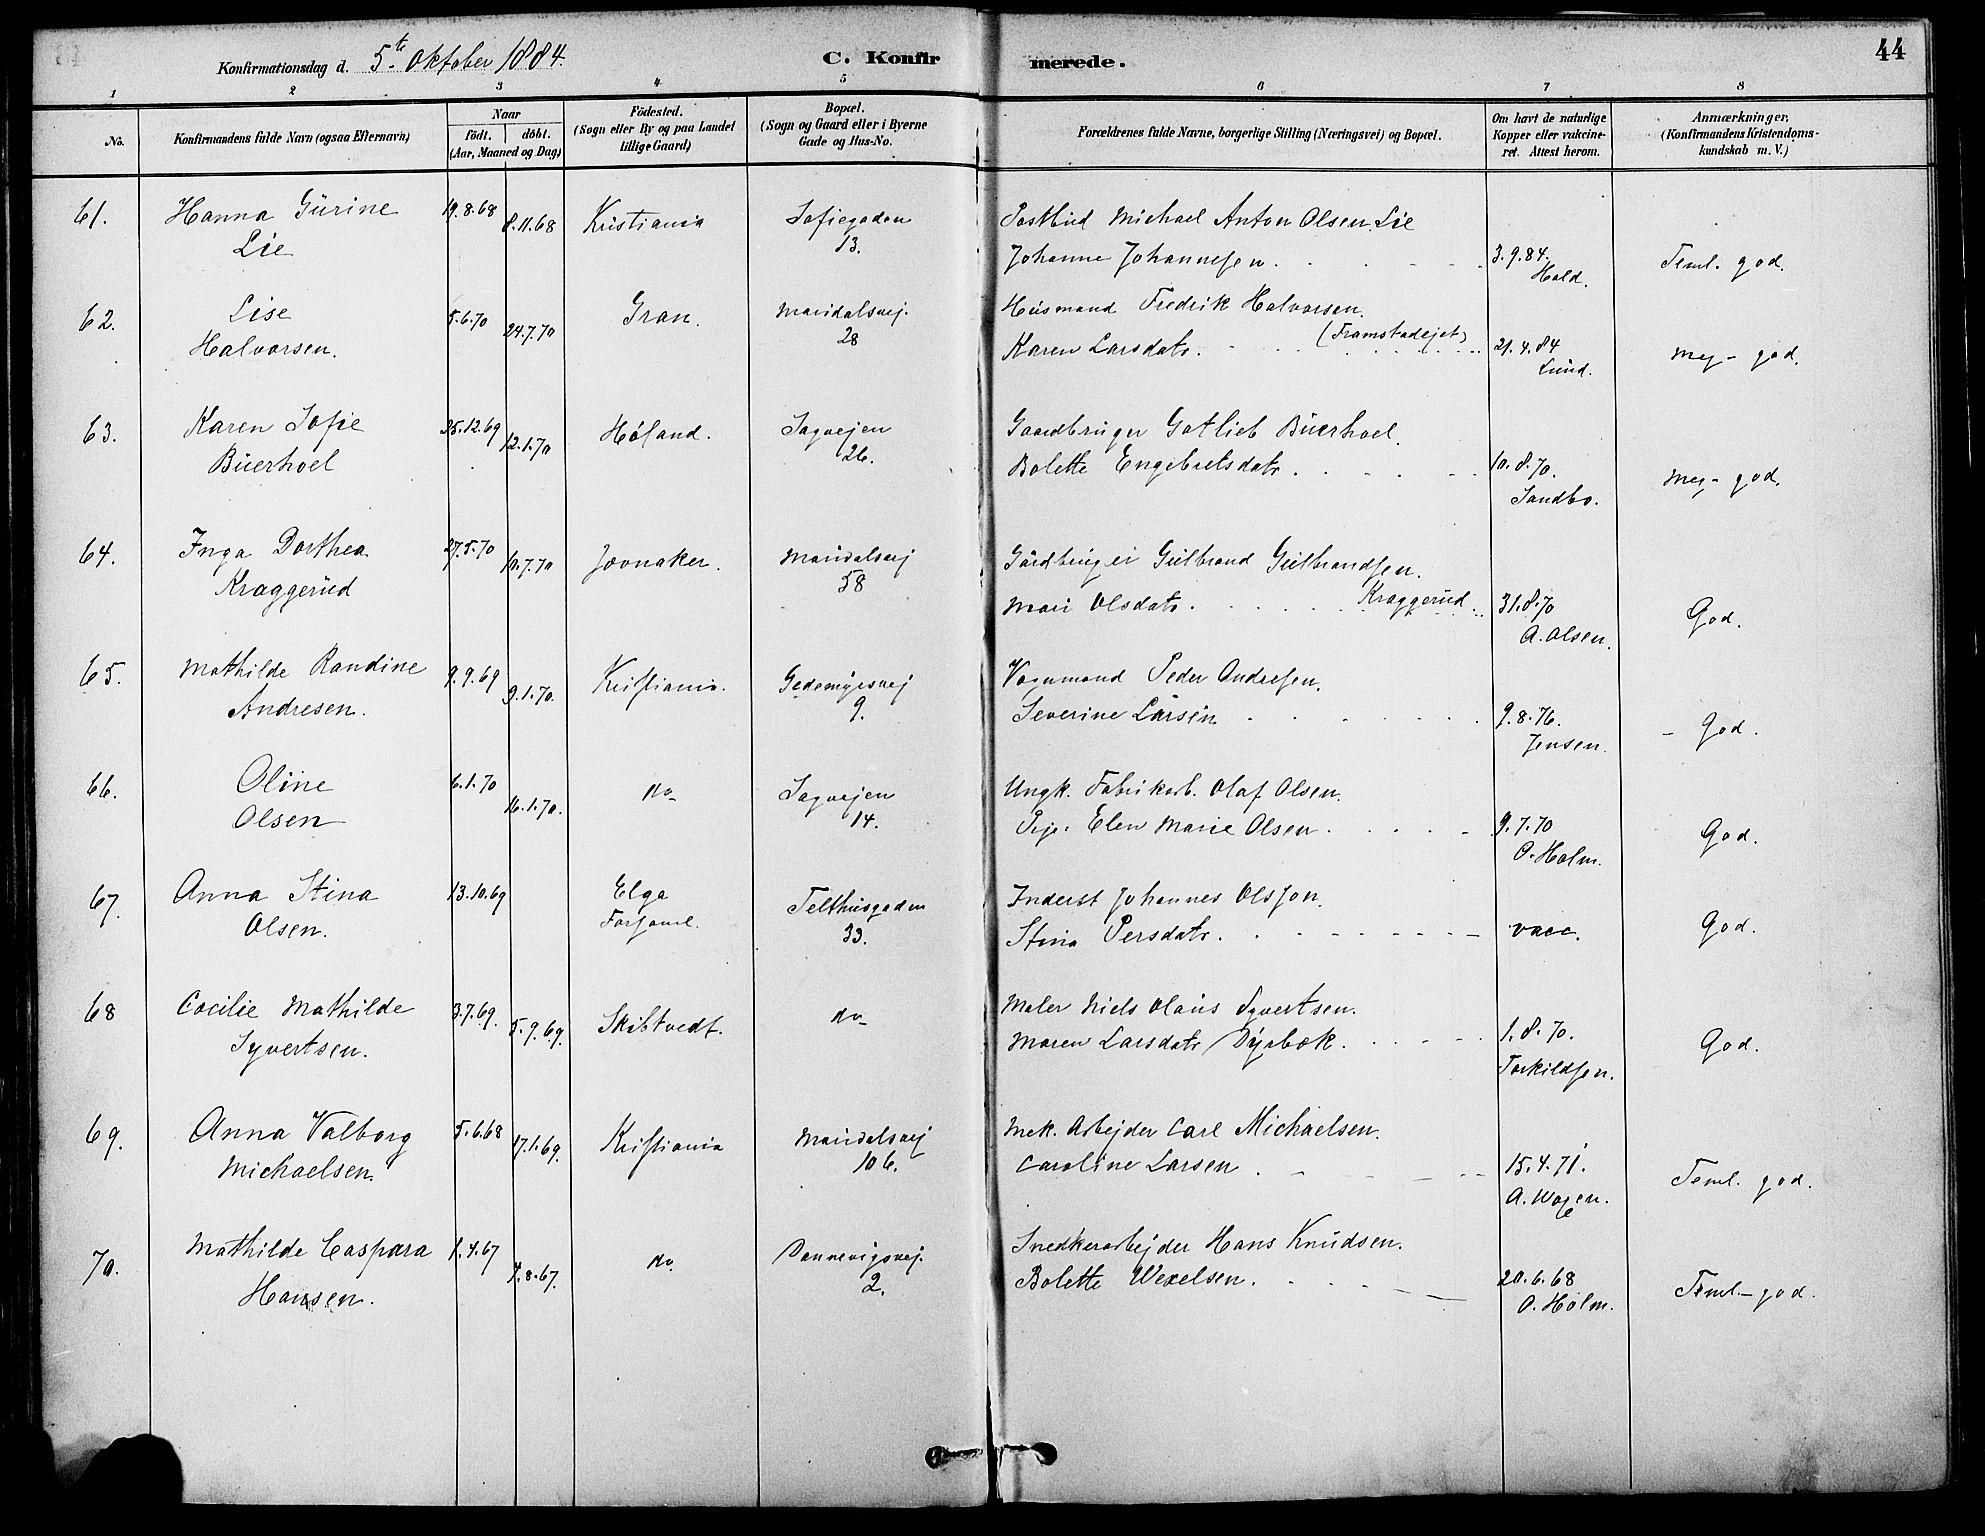 Konfirmationsdag d. 5te Oktober 1884.
C. Konfirmerede.
44
1 2 3 4 5 6 7 8
No.
Konfirmandens fulde Navn (ogsaa Efternavn)
Naar
födt. döbt.
(Aar, Maaned og Dag)
Födested.
(Sogn eller By og paa Landet
tillige Gaard)
Bopæl.
(Sogn og Gaard eller i Byerne
Gade og Hus-No.
Forældrenes fulde Navne, borgerlige Stilling (Næringsvei) og Bopæl.
Om havt de naturlige
Kopper eller vakcine-
ret. Attest herom.
Anmærkninger.
(Konfirmandens Kristendoms-
kundskab m. V.)
61. Hanna Gurine 19.8.68 8.11.68 Kristiania Sofiegaden Postbud Michael Anton Olsen Lie
Lie 13. Johanne Johannesen. 3.9.84. Teml. god.
Hald.
62. Lise 5.6.70 24.7.70 Gran. Maridalsvej. Husmand Fredrik Halvorsen.
Halvorsen. 28 (Framstadejet)
Karen Larsdatr. 21.4.84 Meg- god.
Lund.
63. Karen Sofie 25.12.69 12.1.70 Høland. Sagvejen Gaardbruger Gotlieb Buerhoel.
Buerhoel 26. Bolette Engebretsdatr. 10.8.70. Meg- god.
Sandbo.
64. Inga Dorthea 27.5.70 10.7.70 Jevnaker. Maridalsvej Gårdbruger Gulbrand Gulbrandsen.
Kraggerud 58 Kraggerud.
Mari Olsdatr. 31.8.70 God.
A. Olsen.
65. Mathilde Randine 9.9.69 9.1.70. Kristiania. Gedemyrsvej Vognmand Peder Andresen.
Andresen. 9. Severine Larsen 9.8.76. God.
Jensen.
66. Oline 6.1.70 16.1.70. do Sagvejen Ungk. Fabrikarb. Olaf Olsen.
Olsen 14. Pige. Elen Marie Olsen. 9.7.70 God.
O. Holm.
67. Anna Stina 13.10.69 Elga Telthusgaden Inderst Johannes Olsson.
Olsen. Forsaml. 33. Stina Persdatr. vacc. God.
68 Cecilie Mathilde 3.7.69. 5.9.69. Skibtvedt. do Maler Niels Olaus Syvertsen.
Syvertsen. Maren Larsdatr Dyrbæk. 1.8.70. God.
Torkildsen.
69. Anna Valborg 5.6.68 17.1.69. Kristiania Maridalsvej Mek. Arbejder Carl Michaelsen.
Michaelsen. 106. Caroline Larsen 15.4.71. Teml. god.
A. Wogen.
70. Mathilde Caspara 1.4.67 4.8.67. do Dannevigsvej. Snedkerarbejder Hans Knudsen.
Hansen. 2. Bolette Wexelsen. 20.6.68 Teml-god.
O. Holm.